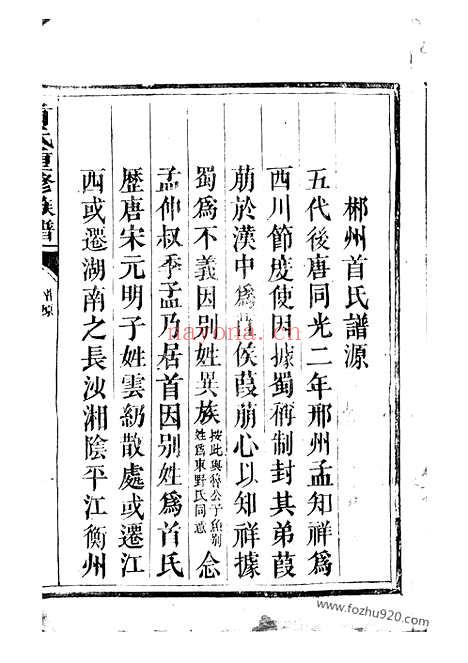 郴州首氏譜源
五代後唐同光二年邢州孟知祥爲
西川節度使因據蜀稱制封其弟葭
萠於漢中爲苴侯葭萠心以知祥據
蜀爲不義因别姓異族按此與犖公子魚别姓爲東野氏同意念
孟仲叔季孟乃居首因别姓爲首氏
歷唐宋元明子姓雲礽散處或遷江
西或遷湖南之長沙湘陰平江衡州
首氏重修族譜
譜源
nayona.cn
www.fozhu920.com